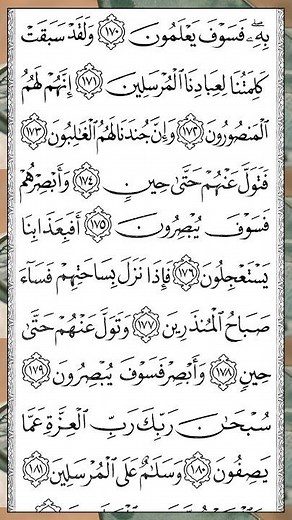 بِهِۦۖ فَسَوۡفَ يَعۡلَمُونَ ١٧٠ وَلَقَدۡ سَبَقَتۡ
كَلِمَتُنَا لِعِبَادِنَا ٱلۡمُرۡسَلِينَ ١٧١ إِنَّهُمۡ لَهُمُ
ٱلۡمَنصُورُونَ ١٧٢ وَإِنَّ جُندَنَا لَهُمُ ٱلۡغَٰلِبُونَ ١٧٣
فَتَوَلَّ عَنۡهُمۡ حَتَّىٰ حِينٖ ١٧٤ وَأَبۡصِرۡهُمۡ
فَسَوۡفَ يُبۡصِرُونَ ١٧٥ أَفَبِعَذَابِنَا
يَسۡتَعۡجِلُونَ ١٧٦ فَإِذَا نَزَلَ بِسَاحَتِهِمۡ فَسَآءَ
صَبَاحُ ٱلۡمُنذَرِينَ ١٧٧ وَتَوَلَّ عَنۡهُمۡ حَتَّىٰ
حِينٖ ١٧٨ وَأَبۡصِرۡ فَسَوۡفَ يُبۡصِرُونَ ١٧٩
سُبۡحَٰنَ رَبِّكَ رَبِّ ٱلۡعِزَّةِ عَمَّا
يَصِفُونَ ١٨٠ وَسَلَٰمٌ عَلَى ٱلۡمُرۡسَلِينَ ١٨١